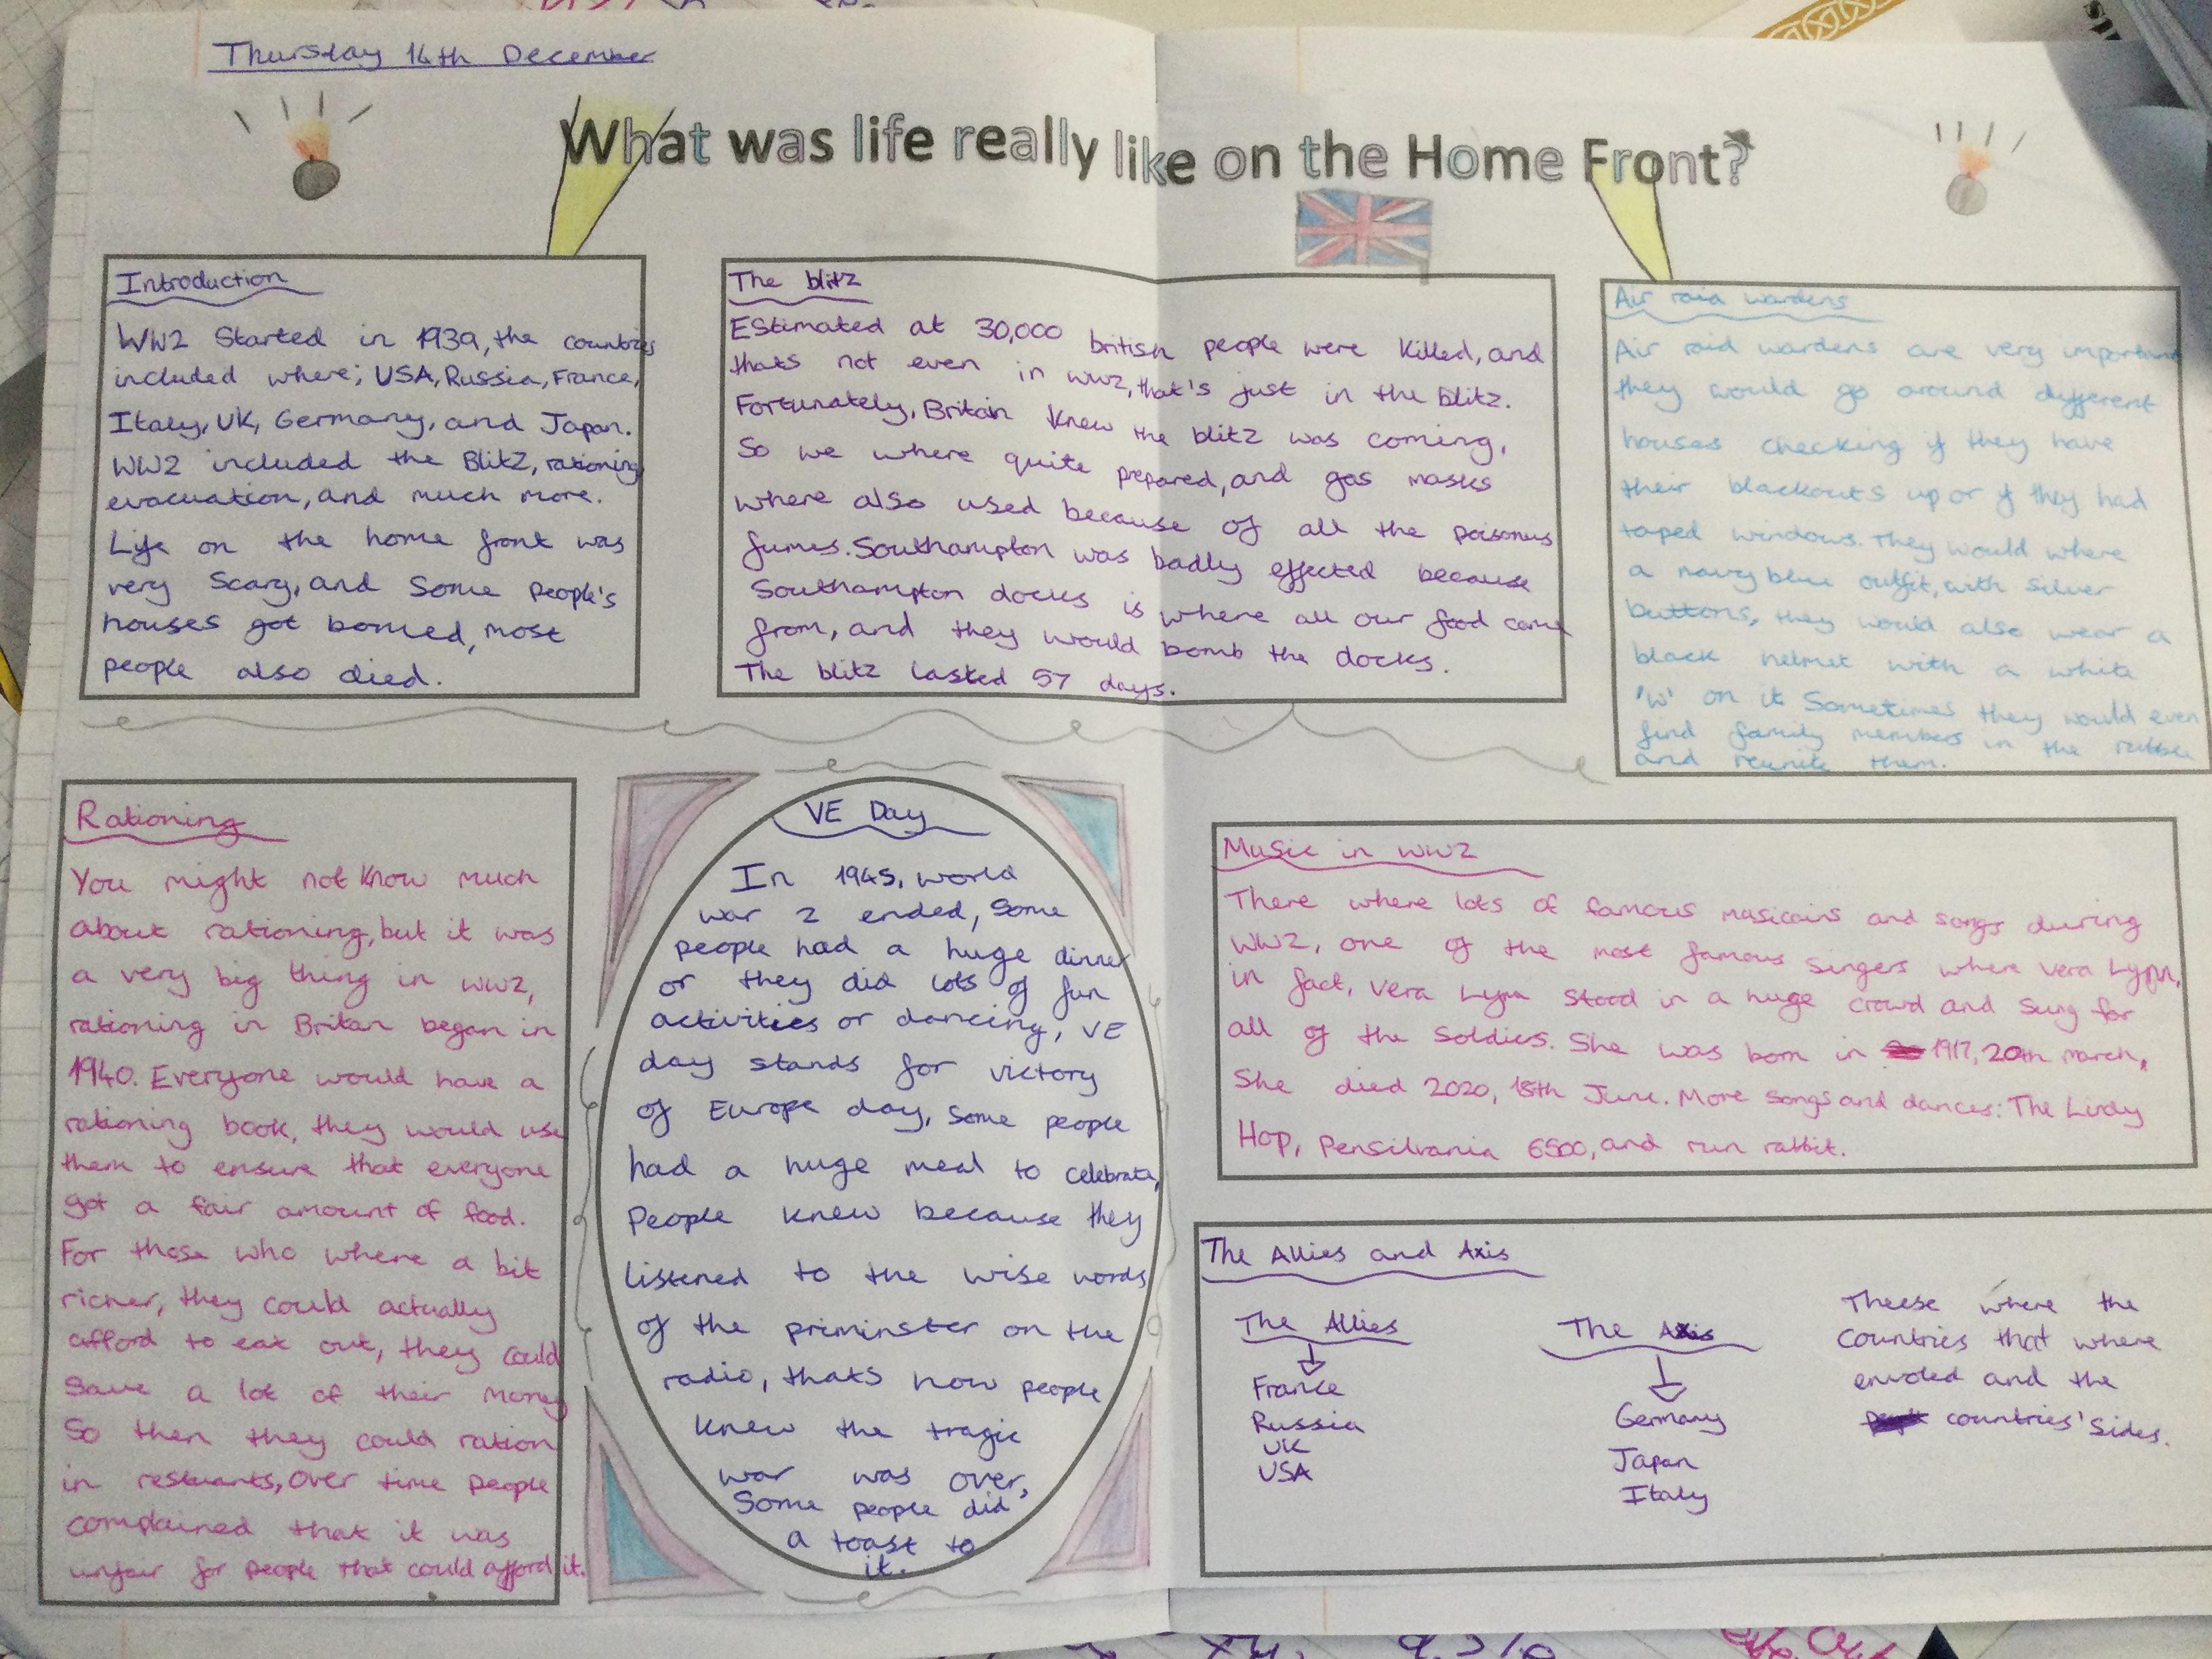 Thursday 14th December
What was life really like on the Home Front?
Introduction
WW2 Started in 1939, the countries
included where; USA, Russia, France,
Italy, UK, Germany, and Japan.
WW2 included the Blitz, rationing
evacuation, and much more.
Life on the home front was
very scary, and some people's
houses got bomed, most
people also died.
The blitz
EStimated at 30,000 british people were killed, and
thats not even in ww2, that's just in the blitz.
Fortunately, Britain knew the blitz was coming,
So we where quite prepared, and gas masks
where also used because of all the poisonus
fumes. Southampton was badly effected because
Southampton docks is where all our food came
from, and they would bomb the docks.
The blitz lasted 57 days.
Air raid wardens
Air raid wardens are very important
they would go around different
houses checking if they have
their blackouts up or if they had
taped windows. They would where
a navy blue outfit, with silver
buttons, they would also wear a
black helmet with a white
'W' on it Sometimes they would even
find family members in the rubble
and reunite them.
Rationing
You might not know much
about rationing, but it was
a very big thing in WW2,
rationing in Britan began in
1940. Everyone would have a
rationing book, they would use
them to ensure that everyone
got a fair amount of food.
For those who where a bit
richer, they could actually
afford to eat out, they could
save a lot of their money
So then they could ration
in restuants, Over time people
complained that it was
unfair for people that could afford it.
VE Day
In 1945, world
war 2 ended, some
people had a huge dinner
or they did lots of fun
activities or dancing, VE
day stands for victory
of Europe day, some people
had a huge meal to celebrate,
People knew because they
listened to the wise words
of the priminster on the
radio, thats how people
knew the tragic
war was over,
Some people did
a toast to
it.
Music in WW2
There where lots of famous musicains and songs during
WW2, one of the most famous singers where Vera Lynn,
in fact, Vera Lynn stood in a huge crowd and sung for
all of the soldies. She was born in 1917, 20th march,
She died 2020, 18th June. More songs and dances: The Lindy
Hop, Pensilvania 6500, and run rabbit.
The Allies and Axis
The Allies
France
Russia
UK
USA
The Axis
Germany
Japan
Italy
Theese where the
countries that where
envoled and the
countries' sides.